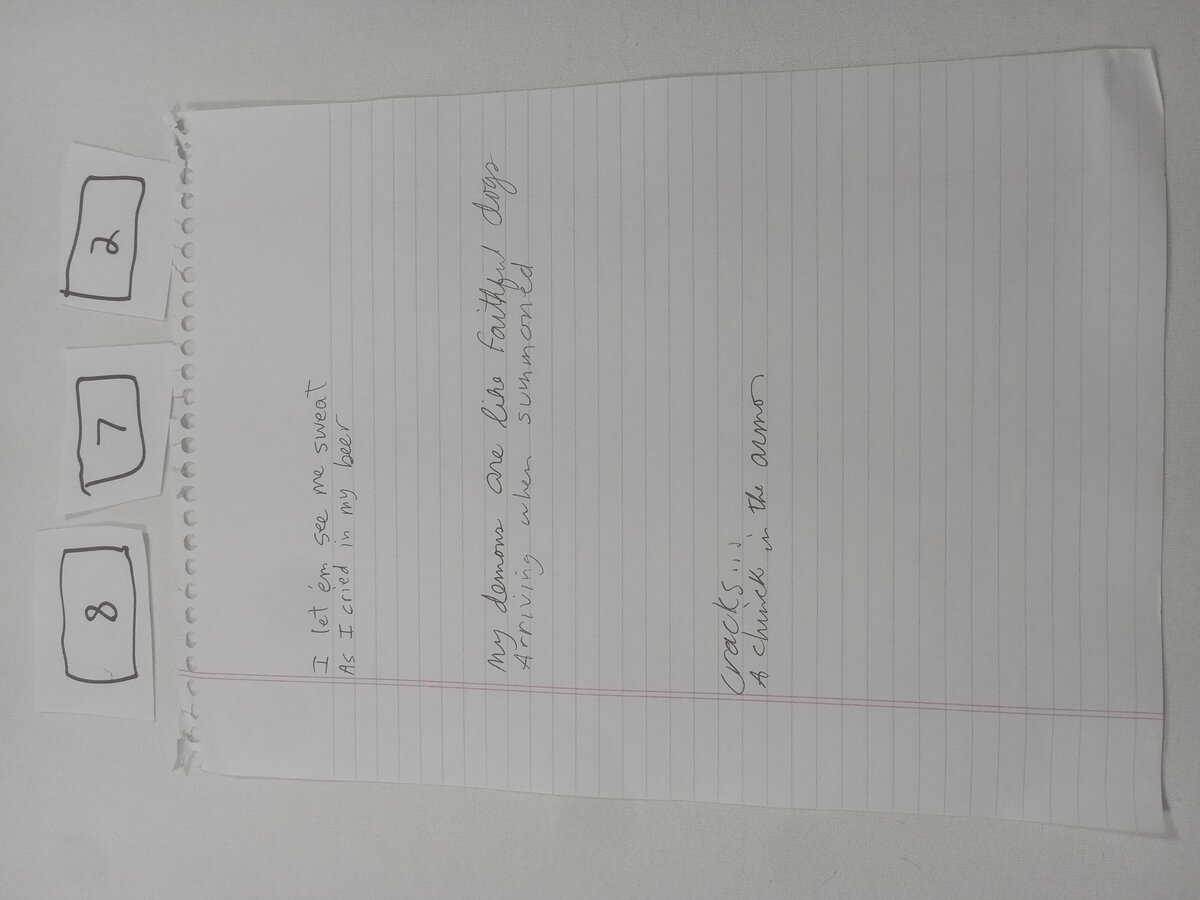 8 7 2
I let 'em see me sweat
As I cried in my beer
My demons are like faithful dogs
Arriving when summoned
Cracks...
A chinck in the armor